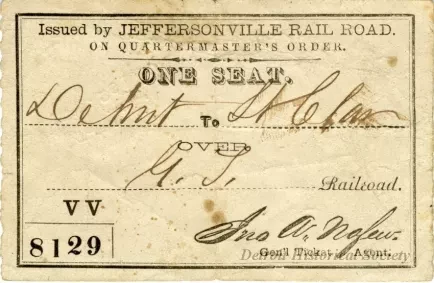 Issued by JEFFERSONVILLE RAIL ROAD.
ON QUARTERMASTER'S ORDER.
ONE SEAT.
Detroit To St Clair
OVER
G. T. Railroad.
VV
8129
Jno
Gen'l Ticket Agent.
Detroit Historical Society